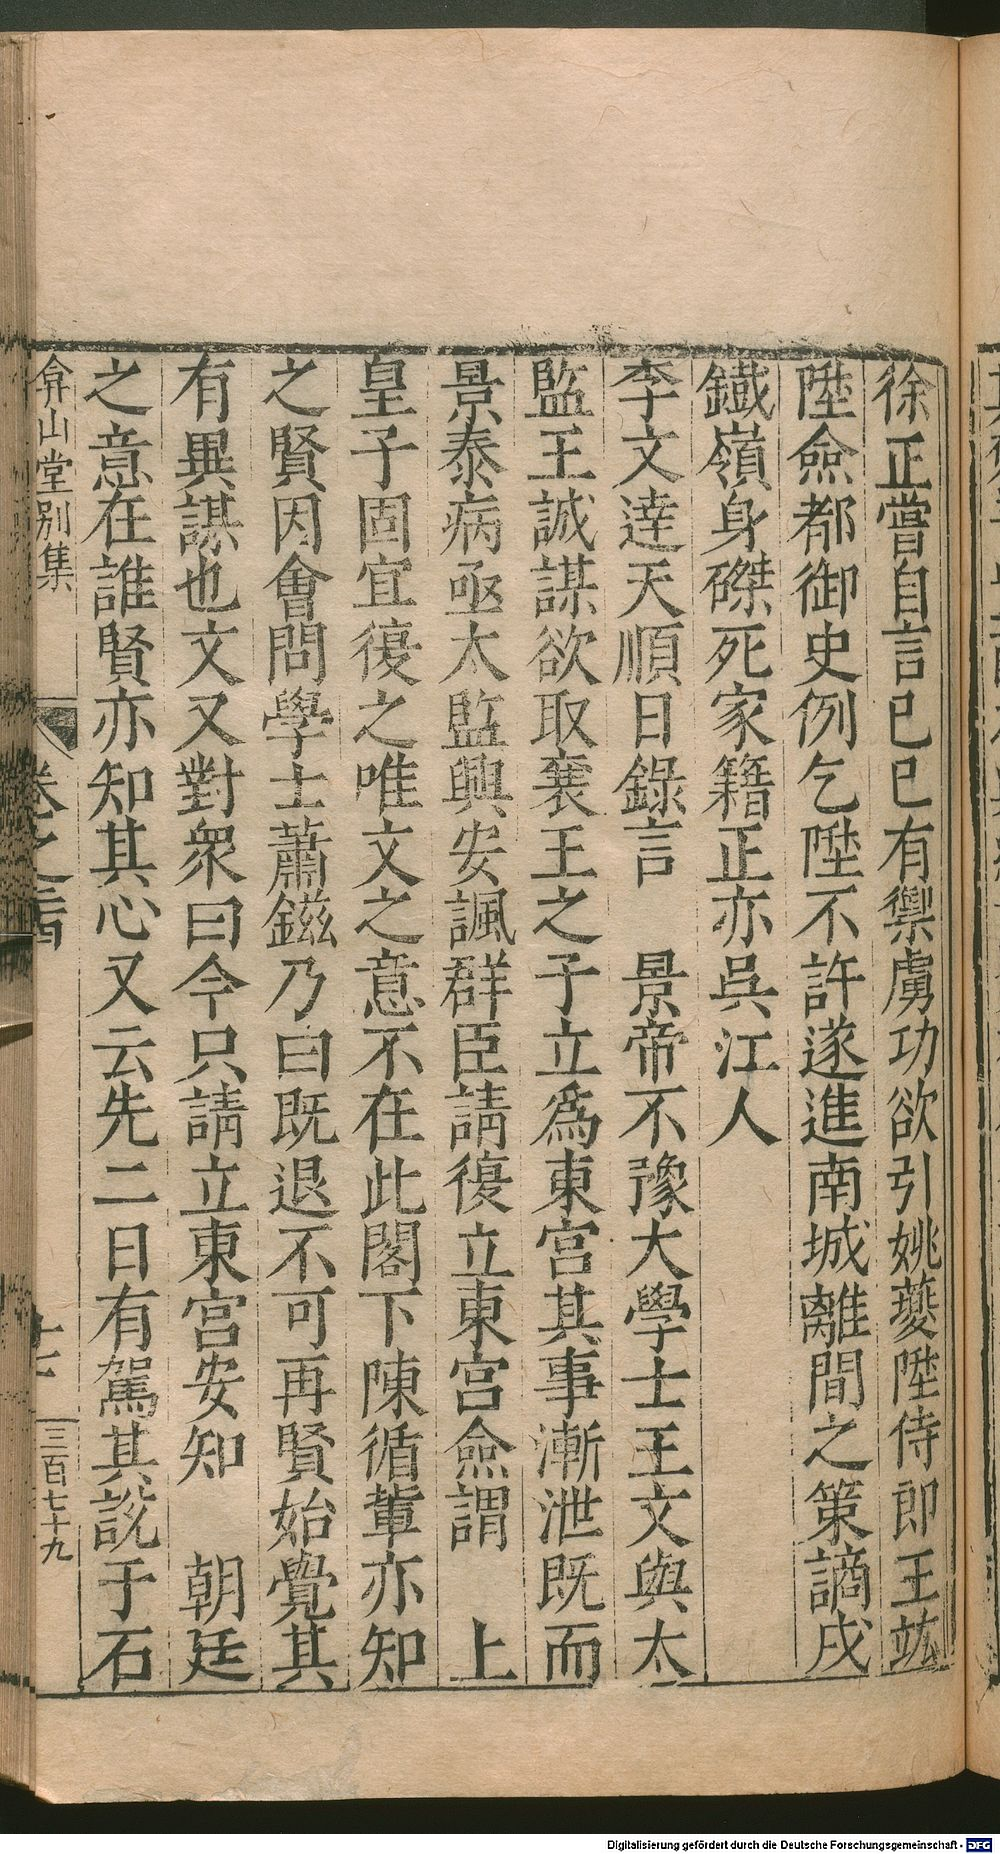 徐正嘗自言己巳有禦虜功欲引姚夔陞侍郎王竑
陞僉都御史例乞陞不許遂進南城離間之策謫戍
鐵嶺身磔死家籍正亦吳江人
李文達天順日錄言　景帝不豫大學士王文與太
監王誠謀欲取襄王之子立爲東宮其事漸泄既而
景泰病亟太監興安諷群臣請復立東宮僉謂　上
皇子固宜復之唯文之意不在此閣下陳循輩亦知
之賢因會問學士蕭鎡乃曰既退不可再賢始覺其
有異謀也文又對衆曰今只請立東宮安知　朝廷
之意在誰賢亦知其心又云先二日有駕其說于石
弇山堂別集
卷之
三百七十九
Digitalisierung gefördert durch die Deutsche Forschungsgemeinschaft - DFG